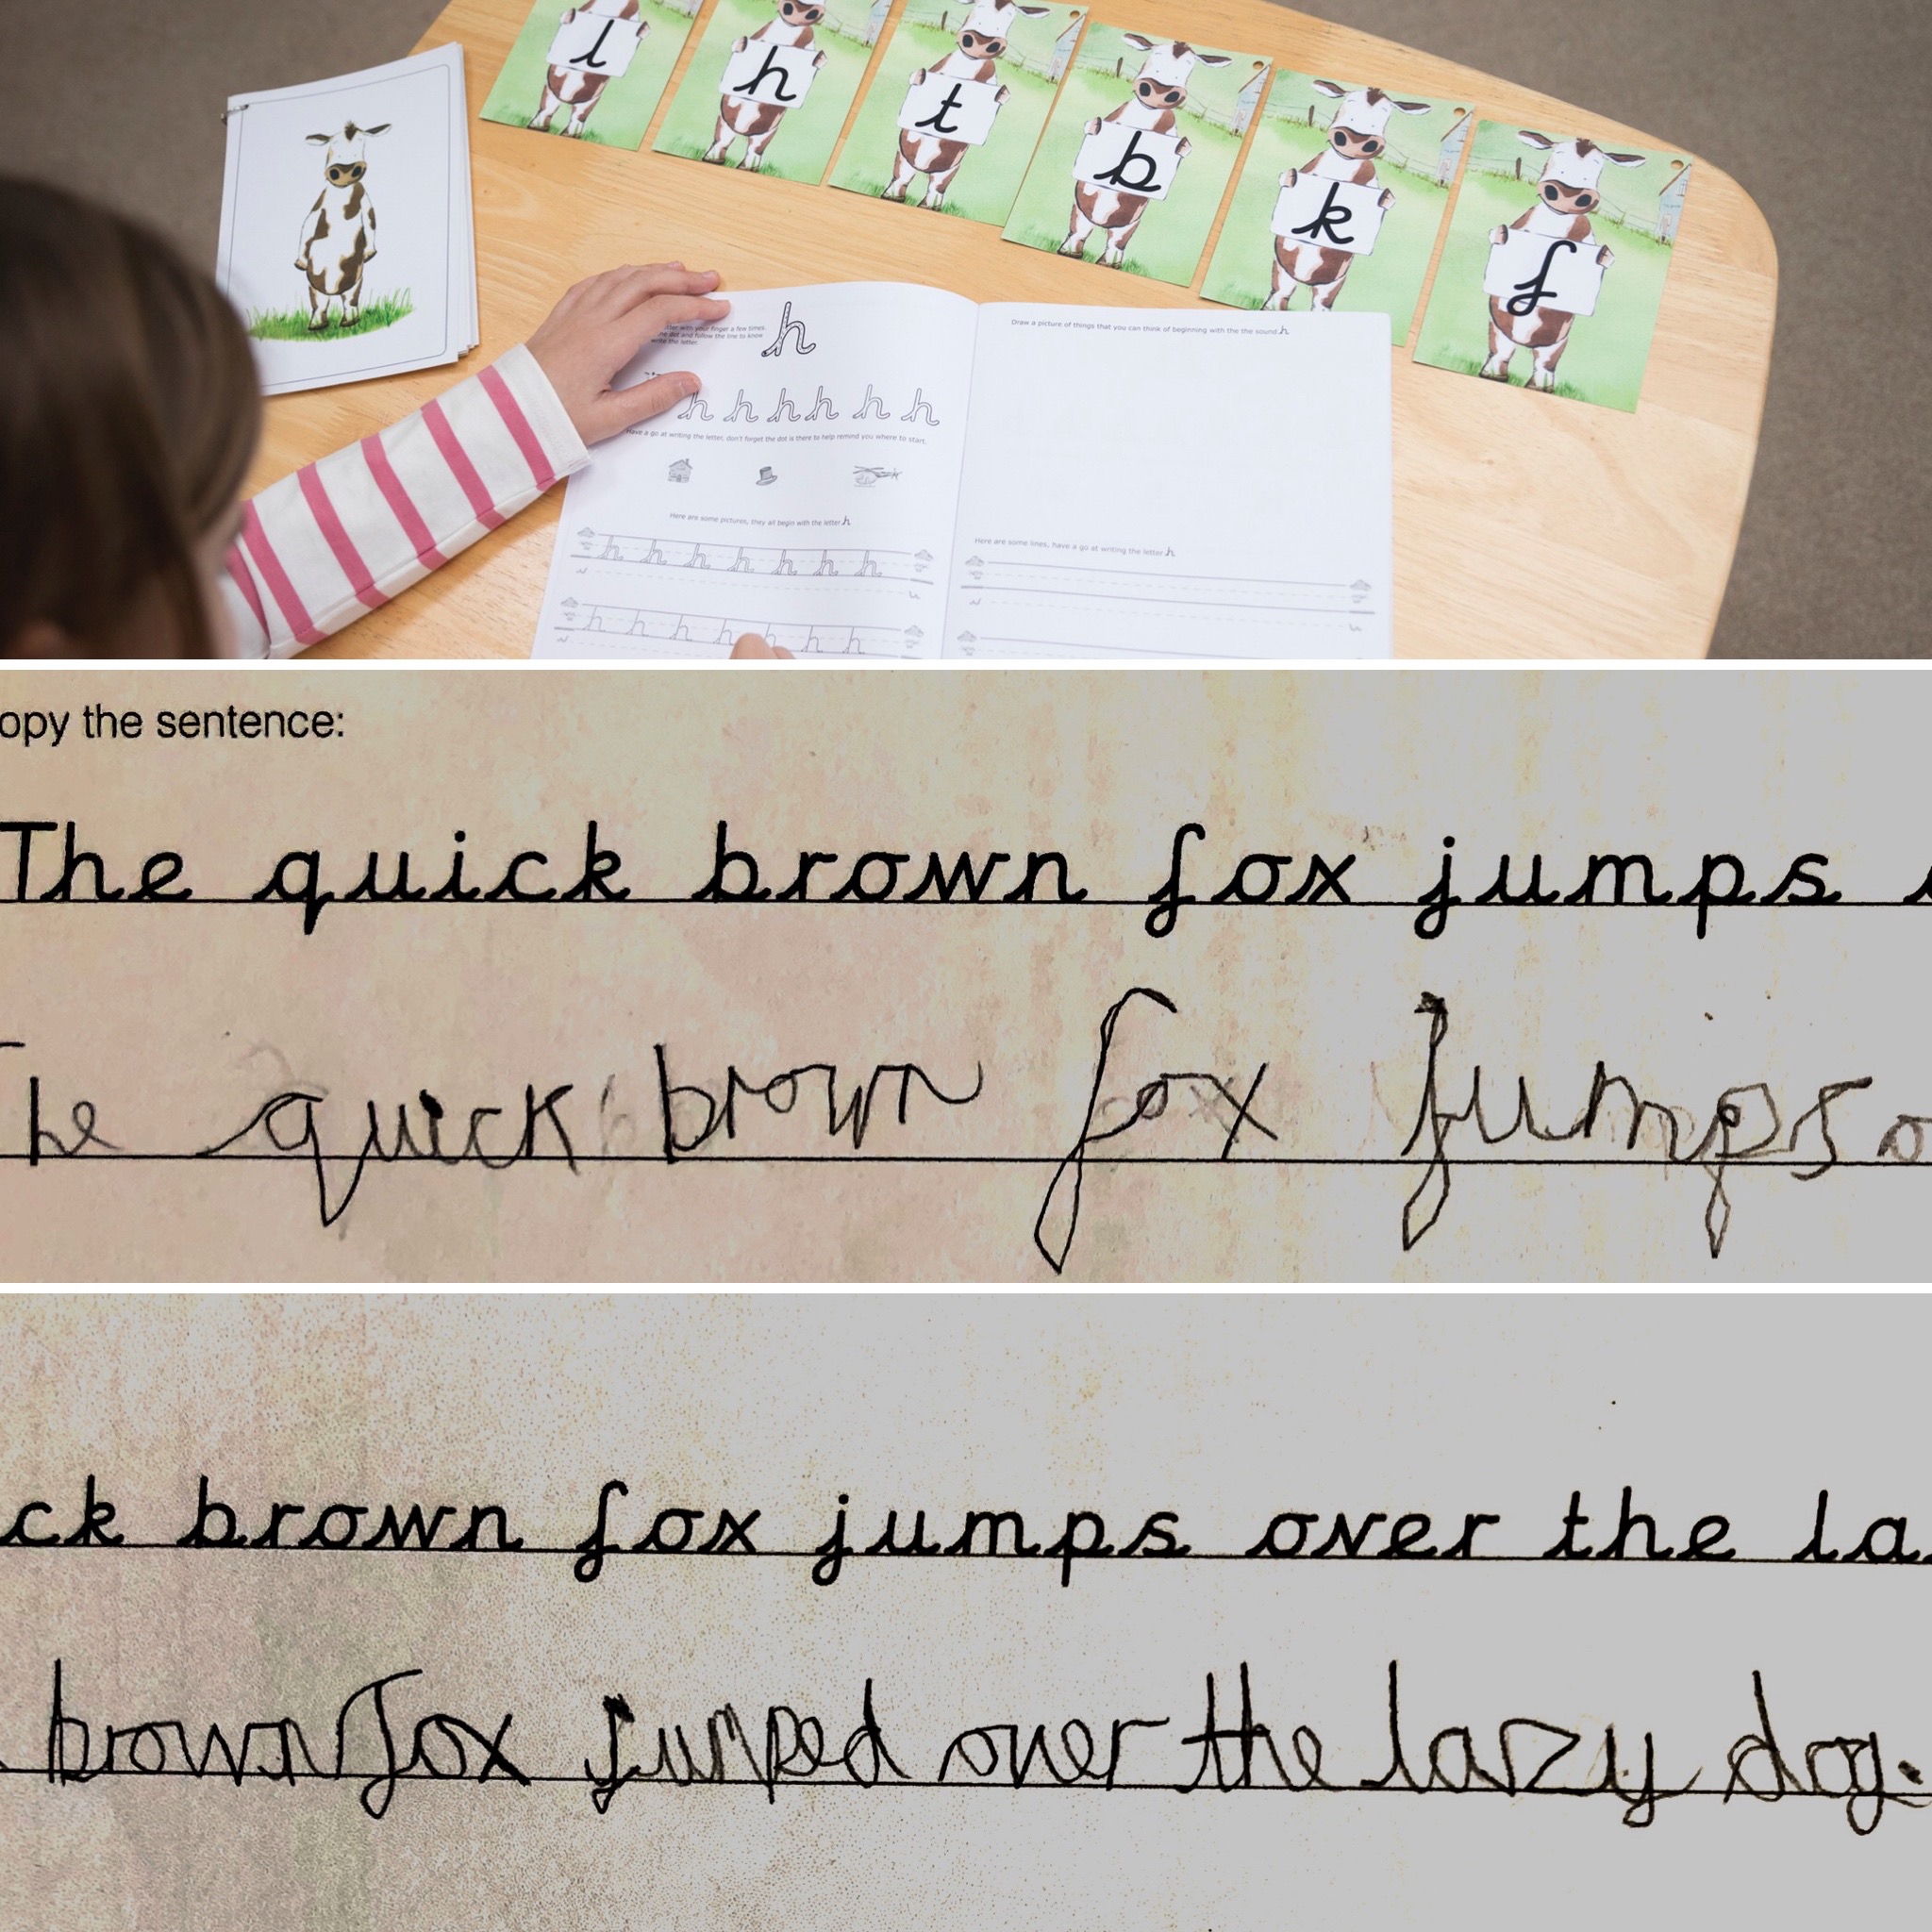 l h t b k f
h
tter with your finger a few times.
he dot and follow the line to know
write the letter.
Draw a picture of things that you can think of beginning with the the sound h
h h h h h h
Have a go at writing the letter, don't forget the dot is there to help remind you where to start.
Here are some pictures, they all begin with the letter h
Here are some lines, have a go at writing the letter h
h h h h h h h
h h h h h h h
opy the sentence:
The quick brown fox jumps
The quick brown fox jumps o
ck brown fox jumps over the la
brown fox jumped over the lazy dog.